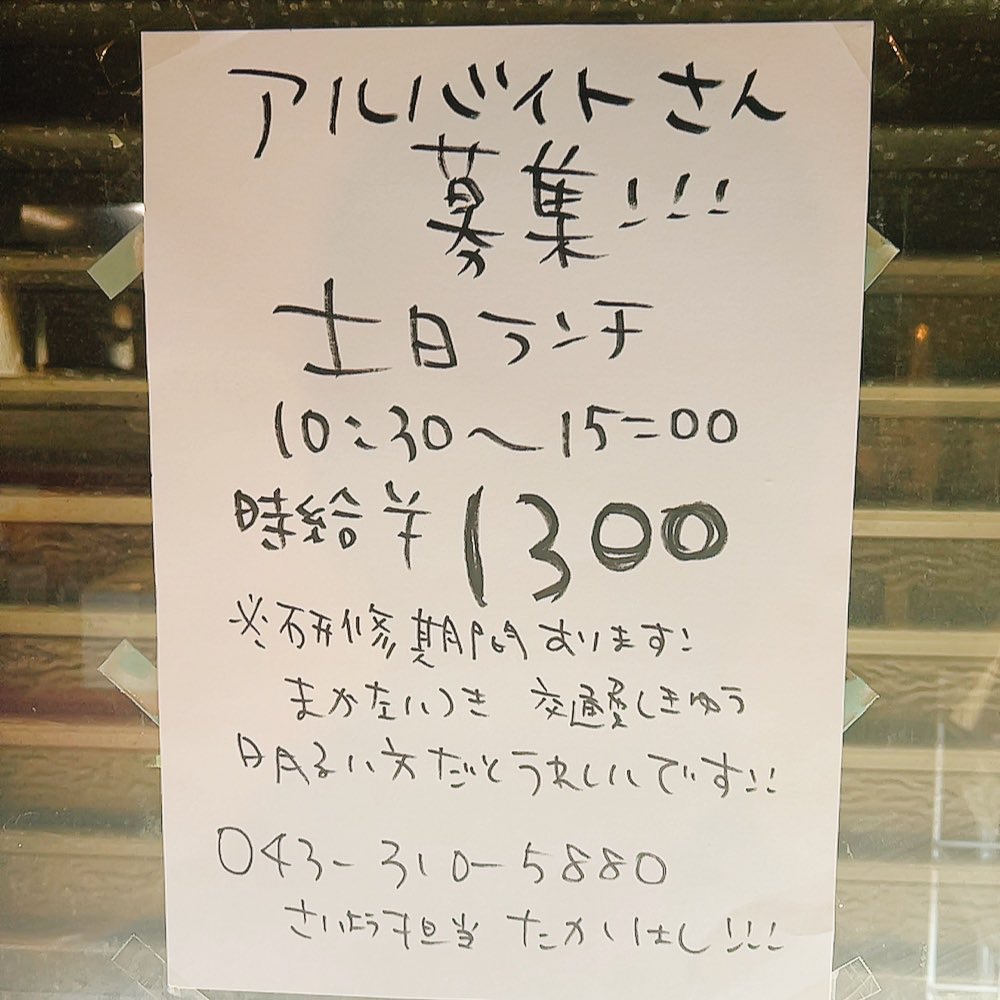 アルバイトさん
募集!!!
土日ランチ
10:30〜15:00
時給¥1300
※研修期間あります!
まかないつき 交通費しきゅう
明るい方だとうれしいです!!
043-310-5880
さいよう担当 たかはし!!!